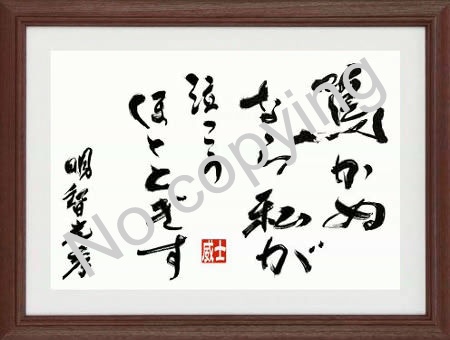 鳴かぬ
なら私が
泣こう
ほととぎす
明智光秀
威士
No copying